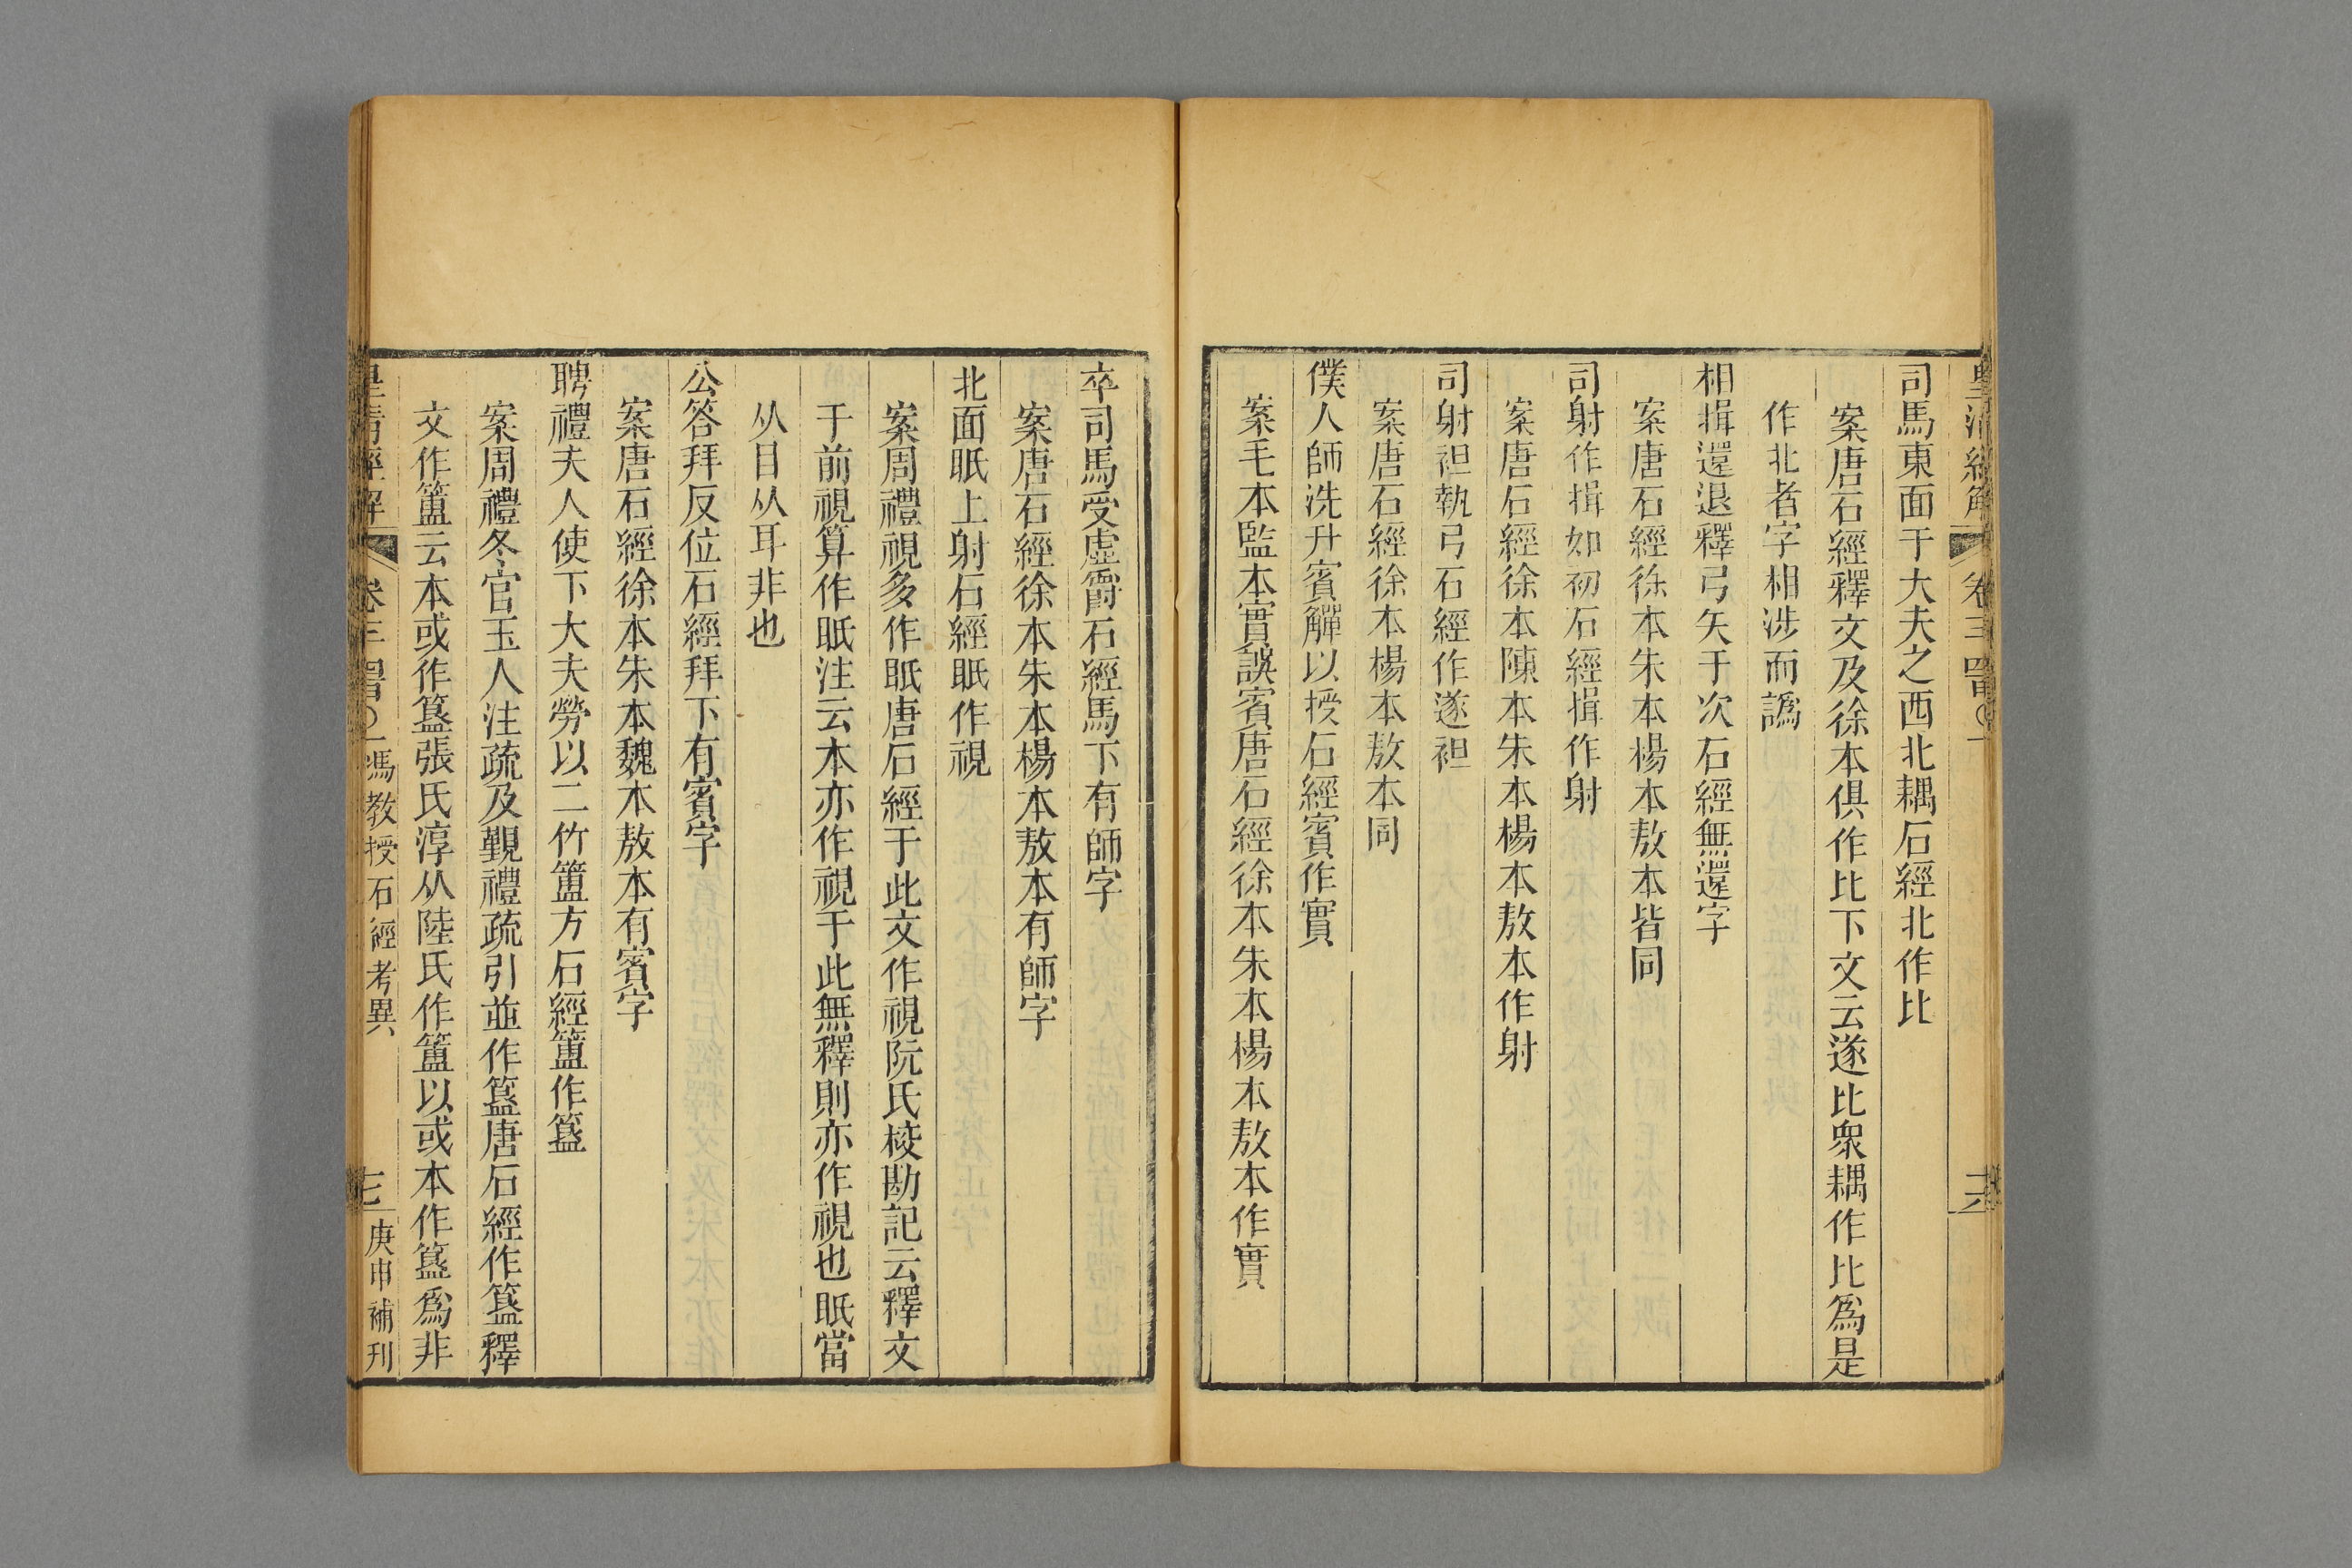 皇清經解 卷 一 十六
司馬東面于大夫之西北耦石經北作比
案唐石經釋文及徐本俱作比下文云遂比衆耦作比爲是
作北者字相涉而譌
相揖還退釋弓矢于次石經無還字
案唐石經徐本朱本楊本敖本皆同
司射作揖如初石經揖作射
案唐石經徐本陳本朱本楊本敖本作射
司射袒執弓石經作遂袒
案唐石經徐本楊本敖本同
僕人師洗升賓觶以授石經賓作實
案毛本監本實誤賓唐石經徐本朱本楊本敖本作實
卒司馬受虛爵石經馬下有師字
案唐石經徐本朱本楊本敖本有師字
北面眡上射石經眡作視
案周禮視多作眡唐石經于此文作視阮氏挍勘記云釋文
于前視算作眡注云本亦作視于此無釋則亦作視也眡當
从目从耳非也
公答拜反位石經拜下有賓字
案唐石經徐本朱本魏本敖本有賓字
聘禮夫人使下大夫勞以二竹簠方石經簠作簋
案周禮冬官玉人注疏及覲禮疏引並作簋唐石經作簋釋
文作簠云本或作簋張氏淳从陸氏作簠以或本作簋爲非
皇清經解 卷 馮教授石經考異 七 庚申補刊